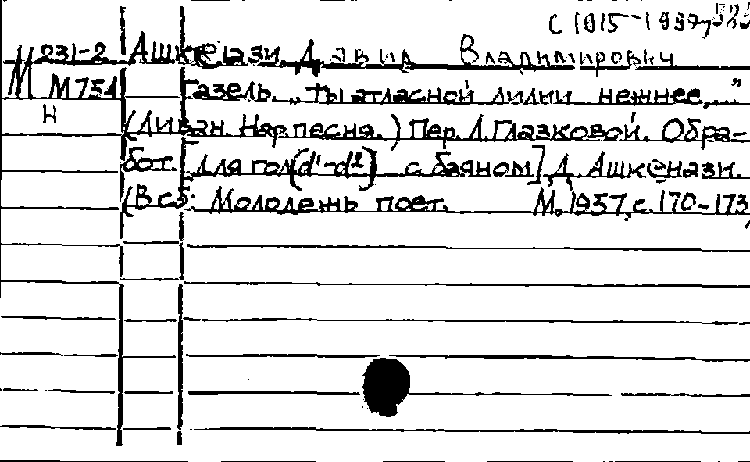 С 1915-1997
М 231-2 Ашкенази, Давид Владимирович
М 751 Газель. „Ты атласной лилии нежнее,..."
Н (Ливан. Нар. песня.) Пер. Л. Глазковой. Обра-
бот. [для гол. (d¹-d²) с баяном] Д. Ашкенази.
(В сб: Молодежь поет. М. 1957, с. 170-173